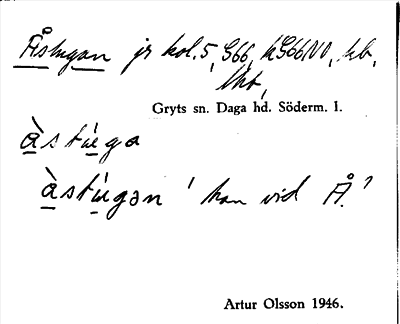 Åstugan jr kol. 5, G66, hG66NO, hb,
Gryts sn. Daga hd. Söderm. l.
àstùga
àstùgən ' han vid Å.'
Artur Olsson 1946.